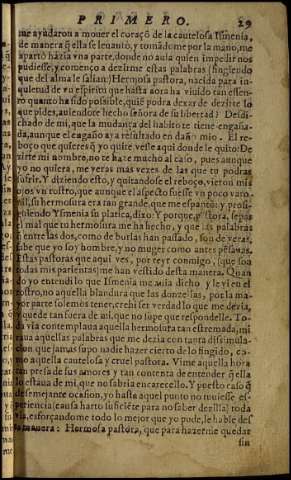 PRIMERO. 29
me ayudaron a mouer el coraçõ de la cautelosa Ismenia,
de manera q̃ ella se leuantò, y tomãdome por la mano, me
apartò hàzia vna parte, donde no auia quien impedir nos
pudiesse, y començo a dezirme estas palabras (fingiendo
que del alma le salian:) Hermosa pastora, nacida para in-
quietud de vn espiritu que hasta aora ha viuido tan essen-
to quanto ha sido possible, quiẽ podra dexar de dezirte lo
que pides, auiendote hecho señora de su libertad? Desdi-
chado de mi, que la mudança del habito te tiene engaña-
da, aunque el engaño ya resulta en daño mio. El re-
boço que quieres q̃ yo quite vesle aqui donde le quito: De
zirte mi nombre, no te haze mucho al caso, pues aunque
yo no quiera, me veras mas vezes de las que tu podras
sufrir. Y diziendo esto, y quitandose el reboço, vieron mis
ojos vn rostro, que aunque el aspecto fuesse vn poco varo-
nil, su hermosura era tan grande, que me espantò: y prosi-
guiendo Ysmenia su platica, dixo: Y porque, pastora, sepas
el mal que tu hermosura me ha hecho, y que las palabras
q̃ entre las dos, como de burlas han passado, son de veras,
sabe que yo soy hombre, y no muger como antes pẽsauas.
Estas pastoras que aqui ves, por reyr conmigo, (que son
todas mis parientas) me han vestido desta manera. Quan
do yo entendi lo que Ismenia me auia dicho y le vi en el
rostro, no aquella blandura que las donzellas, por la ma-
yor parte solemos tener, crei ser verdad lo que me dezia,
y quede tan fuera de mi, que no supe que respondelle. To-
da via contemplaua aquella hermosura tan estremada, mi
raua aquellas palabras que me dezia con tanta dissimula-
cion que jamas supo nadie hazer cierto de lo fingido, co-
mo aquella cautelosa y cruel pastora. Vime aquella hora
tan presa de sus amores y tan contenta de entender, q̃ ella
lo estaua de mi, que no sabria encarecello. Y puesto caso q̃
de semejante ocasion, yo hasta aquel punto no tuuiesse es-
periencia (causa harto suficiẽte para no saber dezilla) toda
via, esforçandome todo lo mejor que yo pude, le hable des
ta manera: Hermosa pastora, que para hazerme quedar
sin